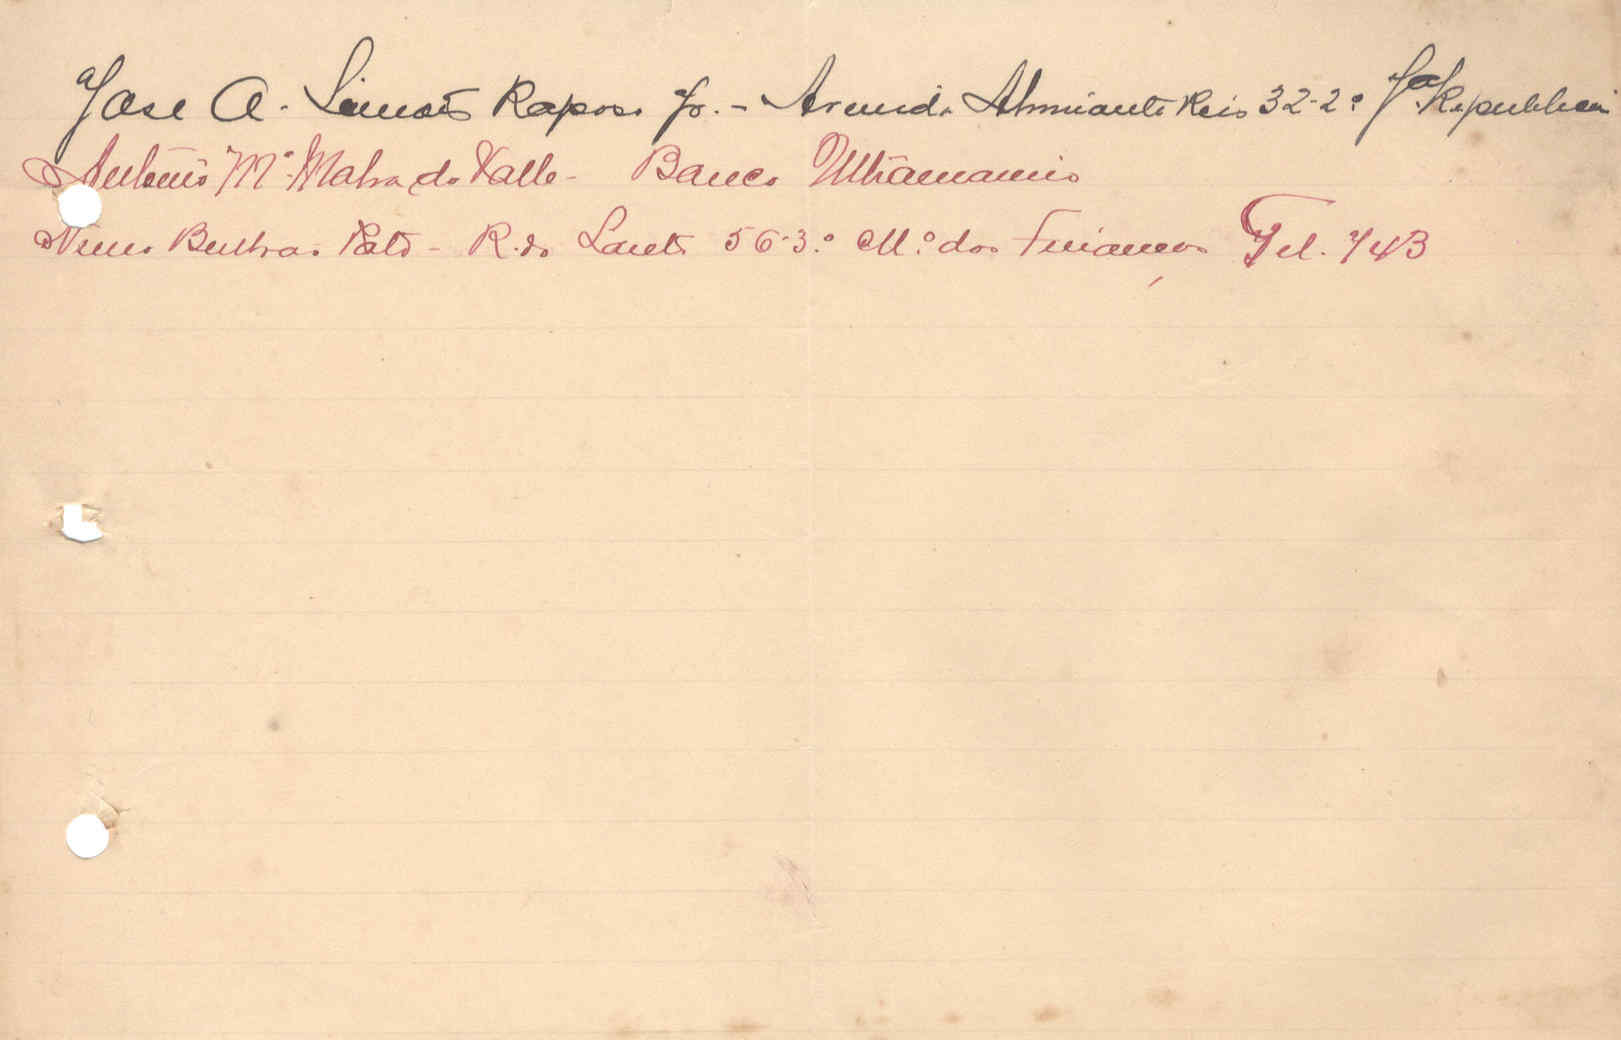 José A. Simões Raposo Jr. - Avenida Almirante Reis 32-2º Jal Republica
António Mª Malva do Valle - Banco Ultramarino
Nuno Bulhão Pato - R. do Salitre 56-3º M.º das Finanças Tel. 743